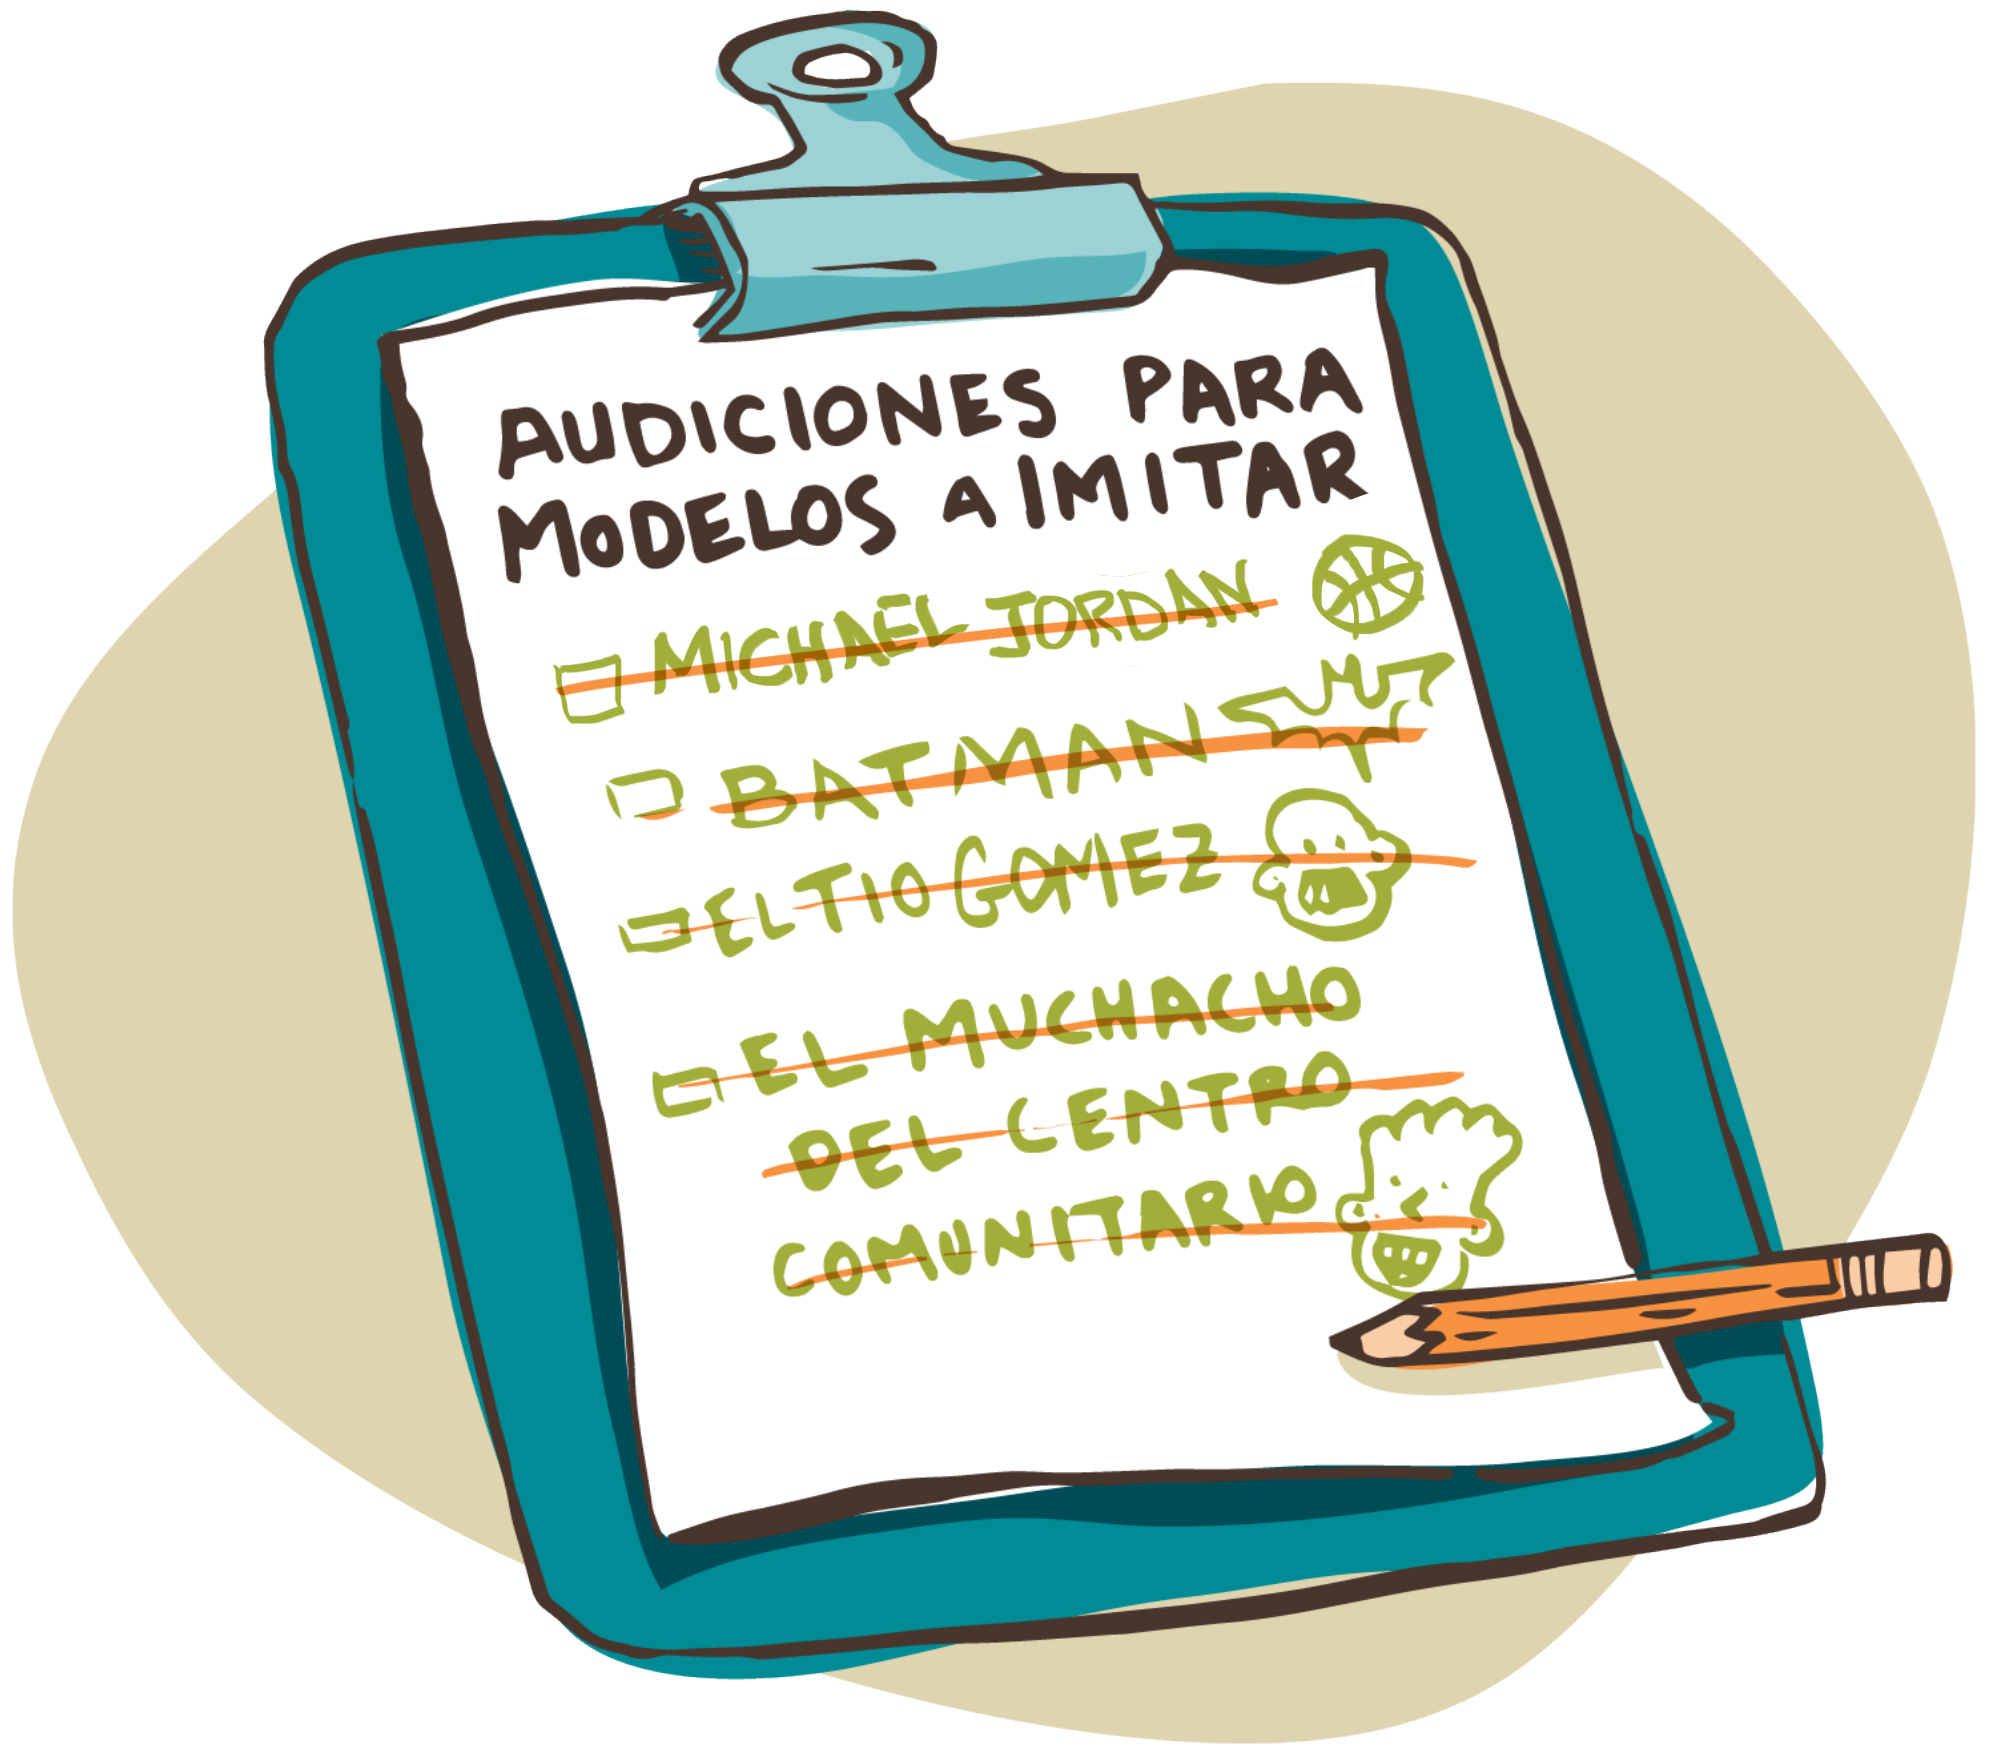 AUDICIONES PARA
MODELOS A IMITAR
MICHAEL JORDAN
BATMAN
EL TIO GOMEZ
EL MUCHACHO
DEL CENTRO
COMUNITARIO